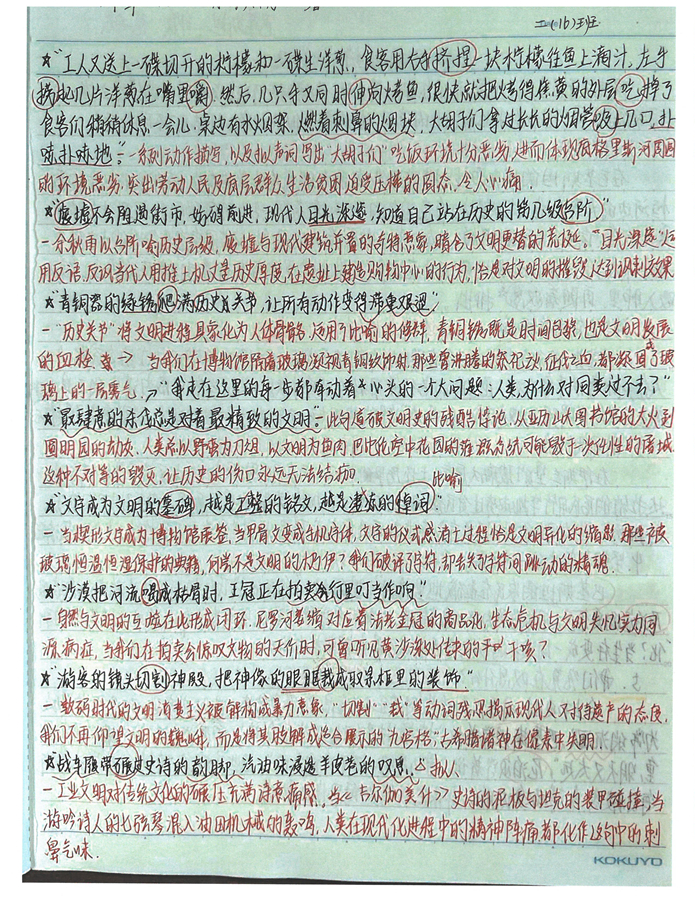 (16)班
☆"工人又送上一碟切开的柠檬和一碟生洋葱,食客用右手挤捏一块柠檬往鱼上滴汁,左手
几片洋葱在嘴里嚼,然后,几只手又同时伸向烤鱼,很快就把烤得焦黄的外层吃掉了
食客们稍稍休息一会儿,桌边有水烟窝,燃着刺鼻的烟块,大胡子们拿过长长的烟管吸上几口,扑
哧扑哧地"一系列动作描写,以及拟声词写出"大胡子们"吃饭环境十分恶劣,进而体现底格里斯河周围
的环境恶劣,突出劳动人民及底层群众生活贫困,迫受压榨的困态,令人心痛.
☆"废墟不会阻遏街市,好硬前进,现代人目光深远,知道自己站在历史的第几级台阶"
一余秋雨以台阶喻历史层级,废墟与现代建筑并置的奇特意象,暗含了文明更替的荒诞。"目光深远"运
用反语,反讽当代人用推土机丈量历史厚度,在废址上建造购物中心的行为,恰是对文明的摧毁,达到讽刺效果
☆"青铜器的绿锈爬满历史关节,让所有动作变得滞重艰涩"
一"历史关节"将文明进程具象化为人体骨骼,运用了比喻的修辞,青铜锈既是时间包浆,也是文明发展
的血栓. → 当我们在博物馆隔着玻璃凝视青铜纹饰时,那些曾沸腾的祭祀歌,征伐血,都凝固成了玻
璃上的一层雾气. "我走在这里的每一步都牵动着心头的一个大问题:人类,为什么对同类过不去?"
☆"最肆意的杀伐总是对着最精致的文明"-此句道破文明史的残酷悖论.从亚历山大图书馆的大火到
圆明园的劫灰,人类总以野蛮为刀俎,以文明为鱼肉,巴比伦空中花园的灌溉系统可能毁于一次任性的屠城.
这种不对等的毁灭,让历史的伤口永远无法结痂. 比喻
☆"文字成为文明的墓碑,越是工整的铭文,越是凄冻的悼词"
一当楔形文字成为博物馆展签,当甲骨文变成手机字体,文字的仪式感消亡过程恰是文明异化的缩影,那些被
玻璃,恒温恒湿保护的典籍,何尝不是文明的木乃伊?我们破译了符符,却丢失了符间跳动的精魂.
☆"沙漠把河流喝成枯骨时,王冠正在拍卖行里叮当作响."
一自然与文明的互噬在此形成闭环.尼罗河萎缩对应着法老金冠的商品化,生态危机与文明失忆实为同
源病症,当我们在拍卖会惊叹文物的天价时,可曾听见黄沙深处传来的干咳?
☆"游客的镜头切割神殿,把神像的眼眶裁成取景框里的装饰."
一数码时代的文明消费主义被解构成暴力意象,"切割""裁"等动词残忍揭示现代人对待遗产的态度,
我们不再仰望文明的巍峨,而是将其肢解成适合展示的"九宫格",古希腊诸神在像素中失明.
☆"战车履带碾过史诗的韵脚,汽油味浸透羊皮卷的叹息." 拟人
一工业文明对传统文化的碾压充满诗意痛感,当《吉尔伽美什》史诗的泥板与坦克的装甲碰撞,当
游吟诗人的七弦琴混入油田机械的轰鸣,人类在现代化进程中的精神阵痛都化作这句中的刺
鼻气味.
KOKUYO